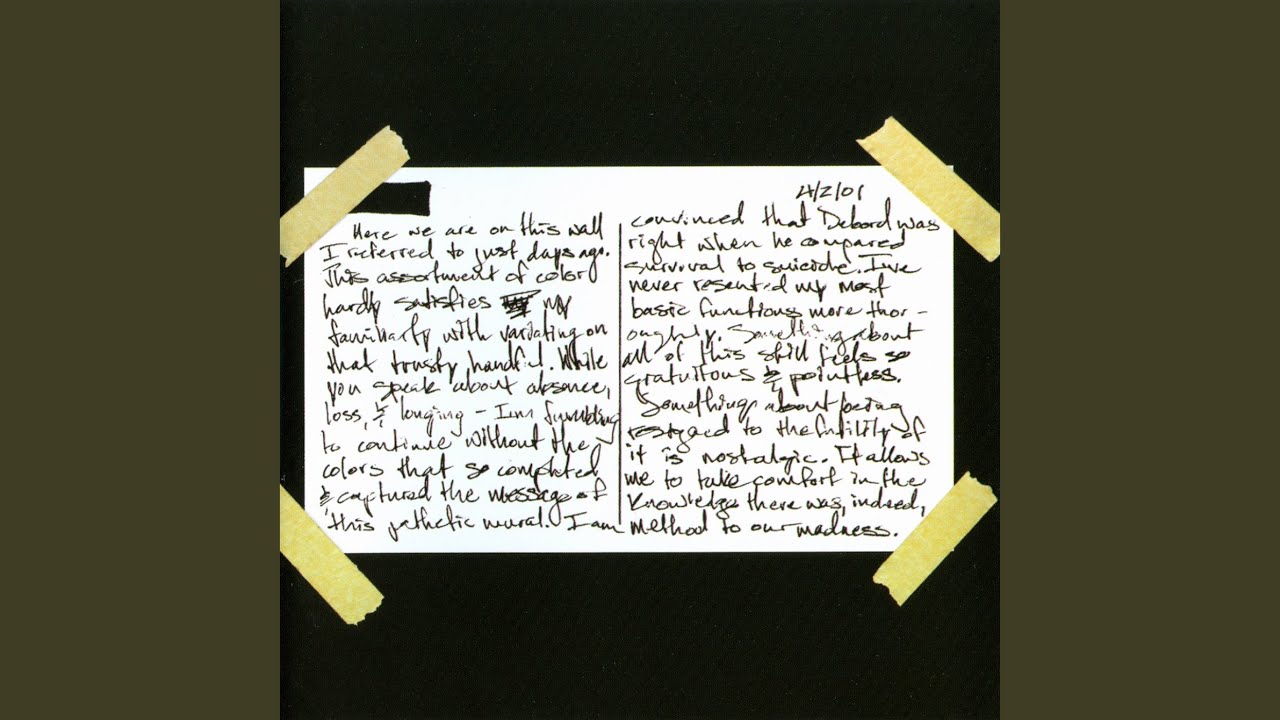 4/2/01
Here we are on this wall
I referred to just days ago.
This assortment of color
hardly satisfies my
familiarty with variating on
that trusty handful. While
you speak about absence,
loss, & longing - I am fumbling
to continue without the
colors that so completed
& captured the message of
this pathetic mural. I am
convinced that Debord was
right when he compared
survival to suicide. I've
never resented my most
basic functions more thor-
oughly. Something about
all of this still feels so
gratuitous & pointless.
Something about being
resigned to the futility of
it is nostalgic. It allows
me to take comfort in the
knowledge there was, indeed,
method to our madness.